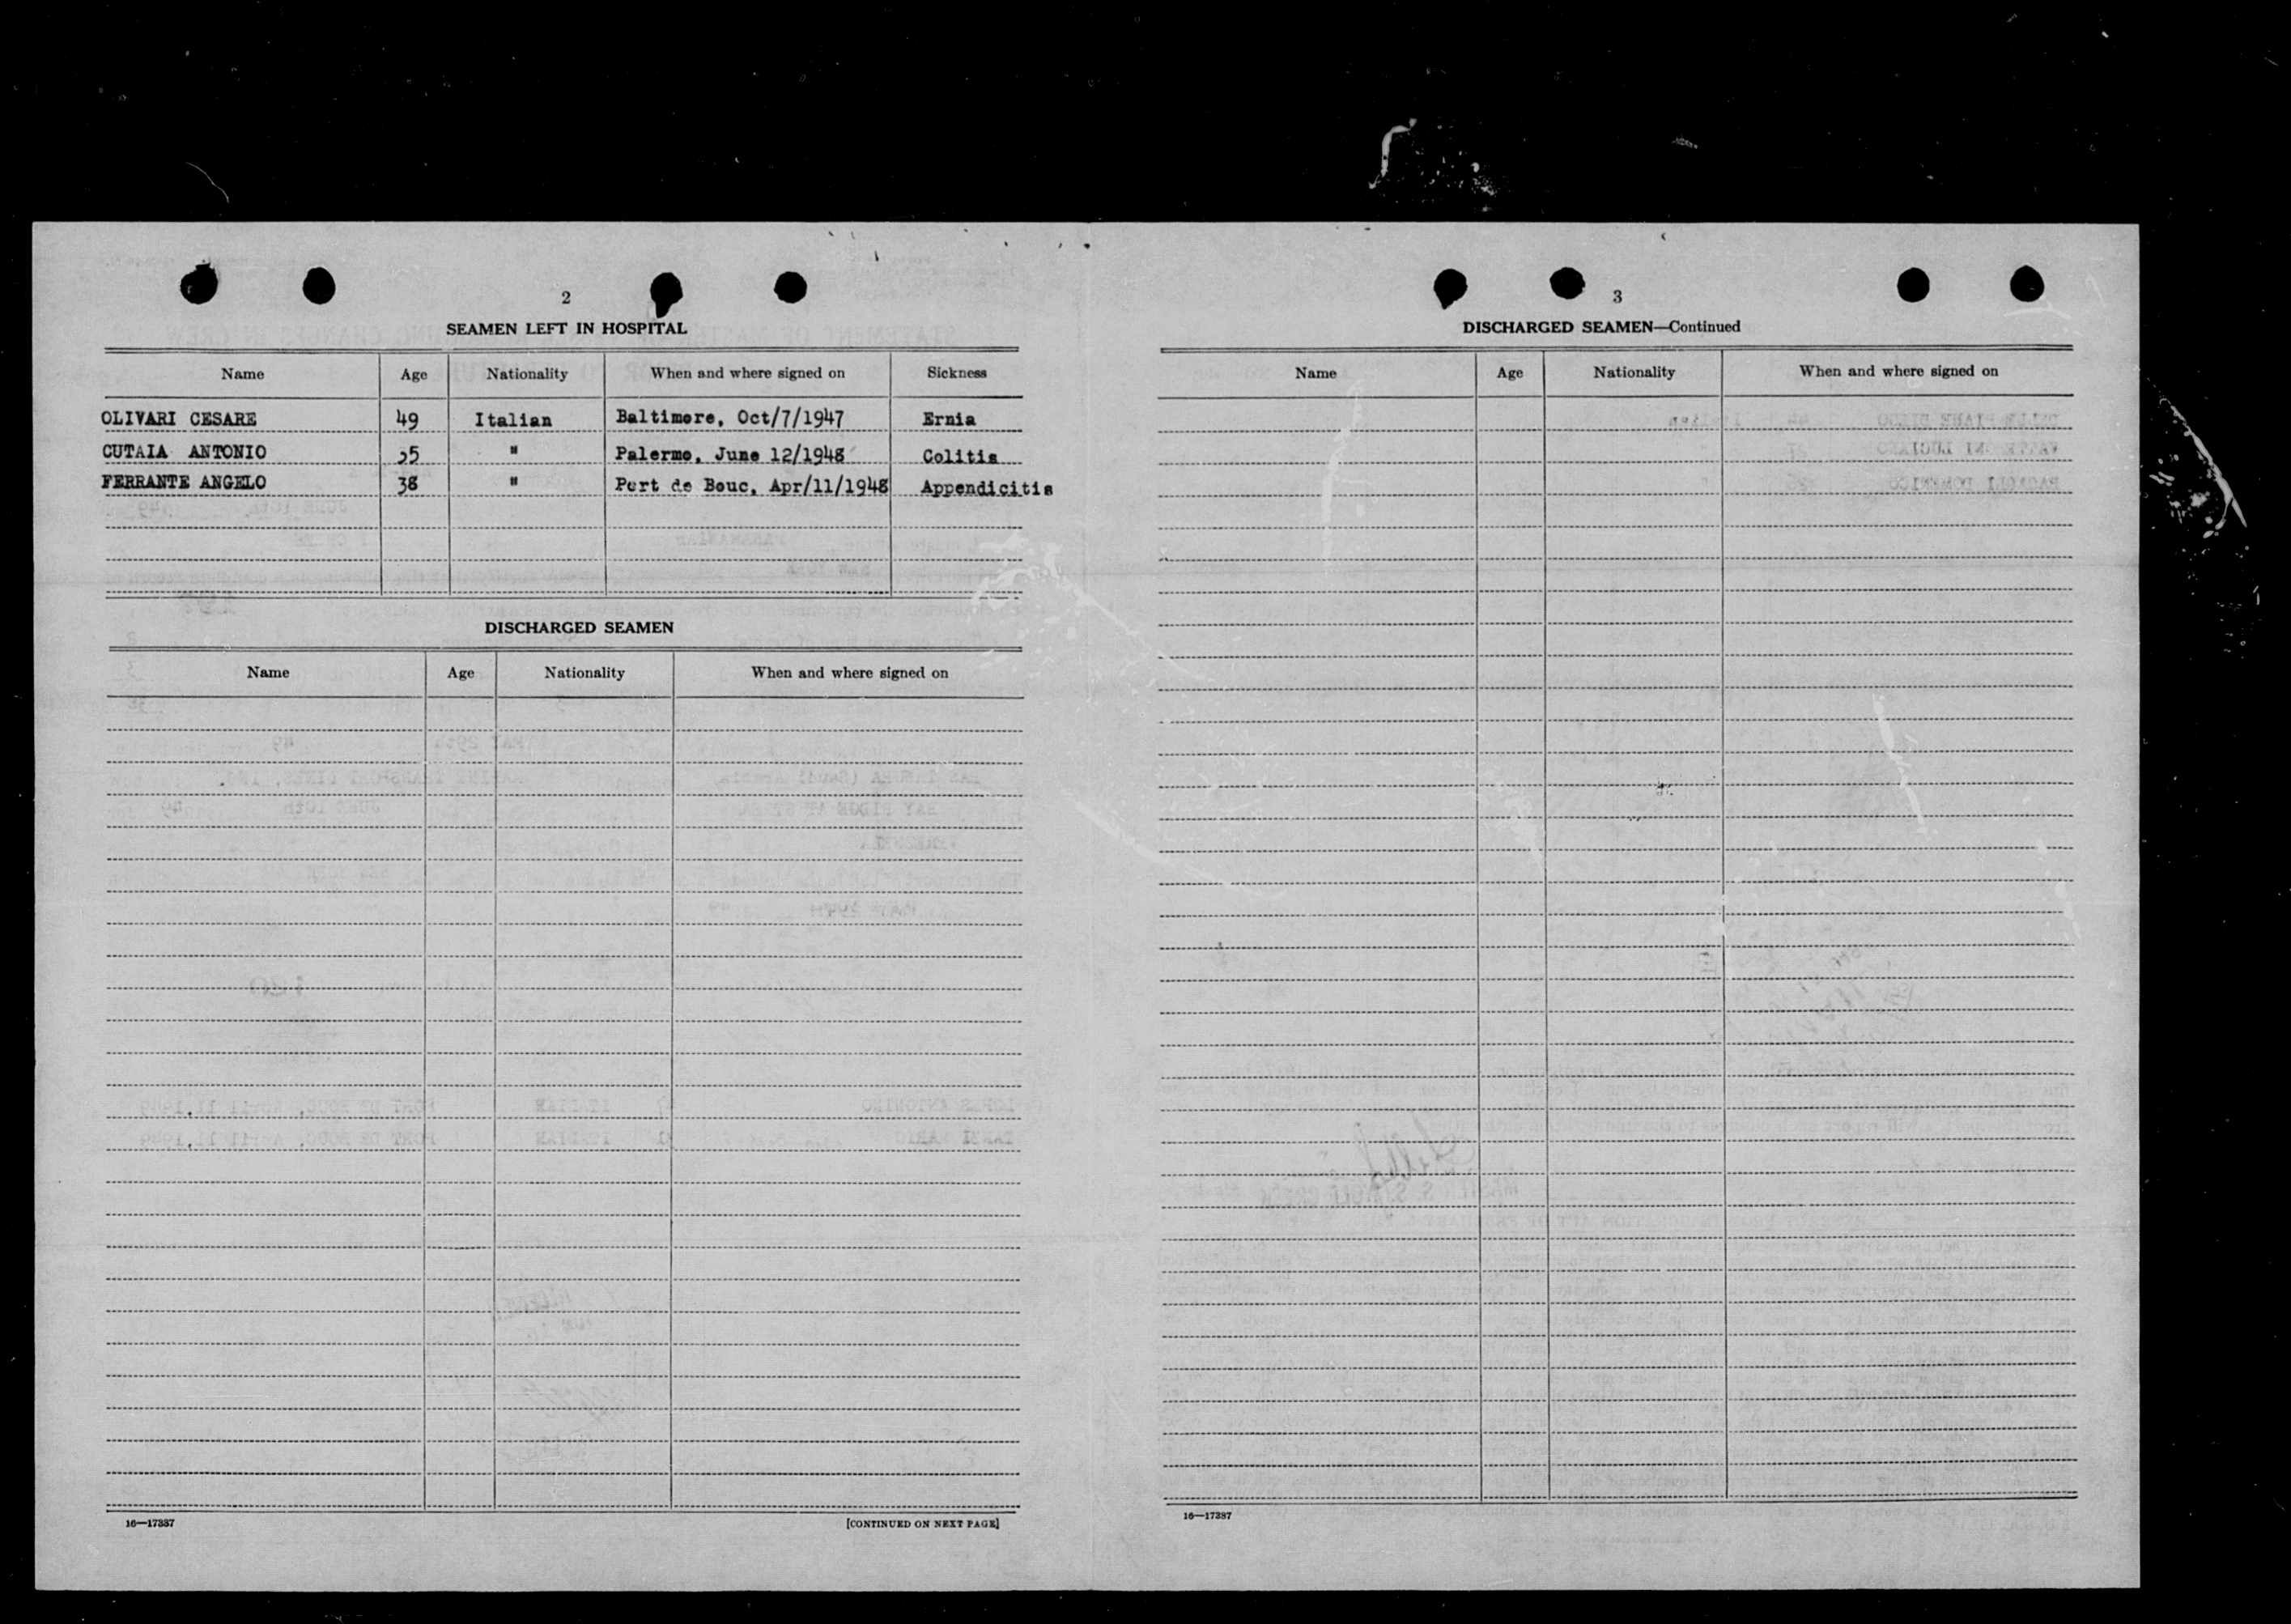 2
SEAMEN LEFT IN HOSPITAL
Name Age Nationality When and where signed on Sickness
OLIVARI CESARE 49 Italian Baltimore, Oct/7/1947 Ernia
CUTAIA ANTONIO 35 " Palermo, June 12/1948 Colitis
FERRANTE ANGELO 38 " Port de Bouc, Apr/11/1948 Appendicitis
DISCHARGED SEAMEN
Name Age Nationality When and where signed on
16—17337
[CONTINUED ON NEXT PAGE]
3
DISCHARGED SEAMEN—Continued
Name Age Nationality When and where signed on
16—17337